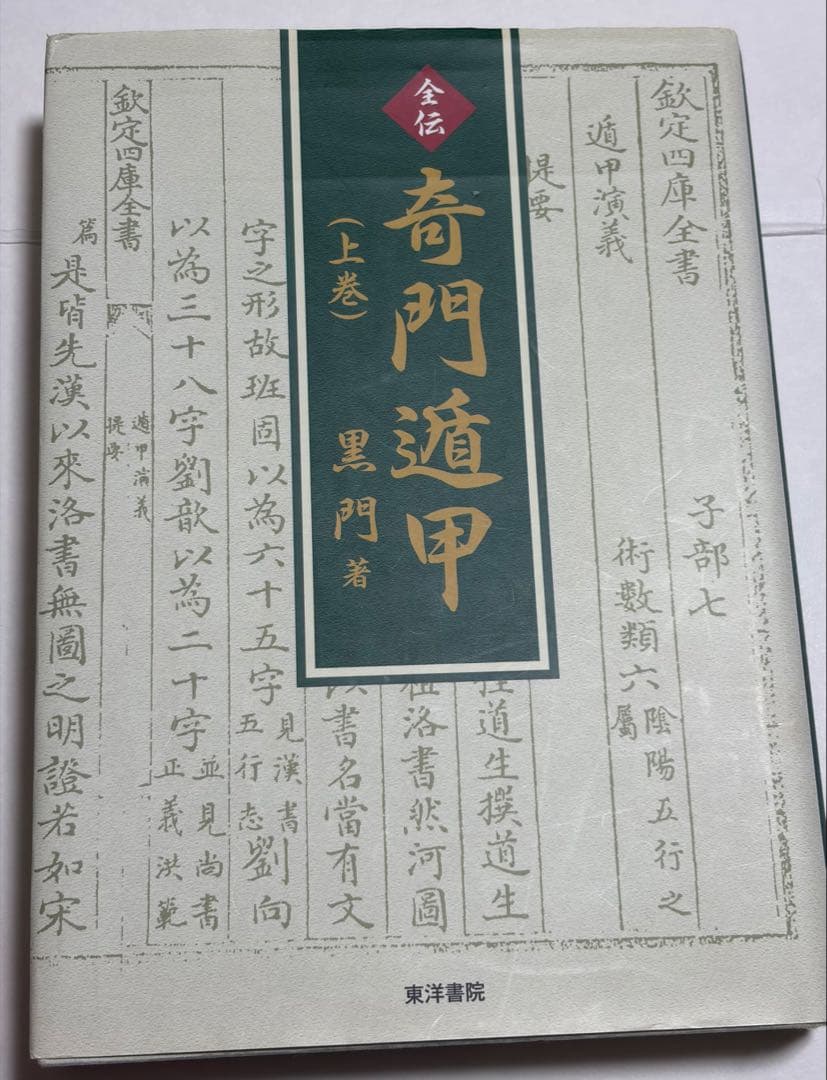 全伝
奇門遁甲
(上巻)
黒門 著
欽定四庫全書
子部七
遁甲演義
術數類六
陰陽五行之
屬
提要
道生撰道生
洛書然河圖
書名當有文
字之形故班固以為六十五字
見漢書
五行志
劉向
以為三十八字劉歆以為二十字
並見尚書
正義洪範
欽定四庫全書
遁甲演義
提要
篇
是皆先漢以來洛書無圖之明證若如宋
東洋書院